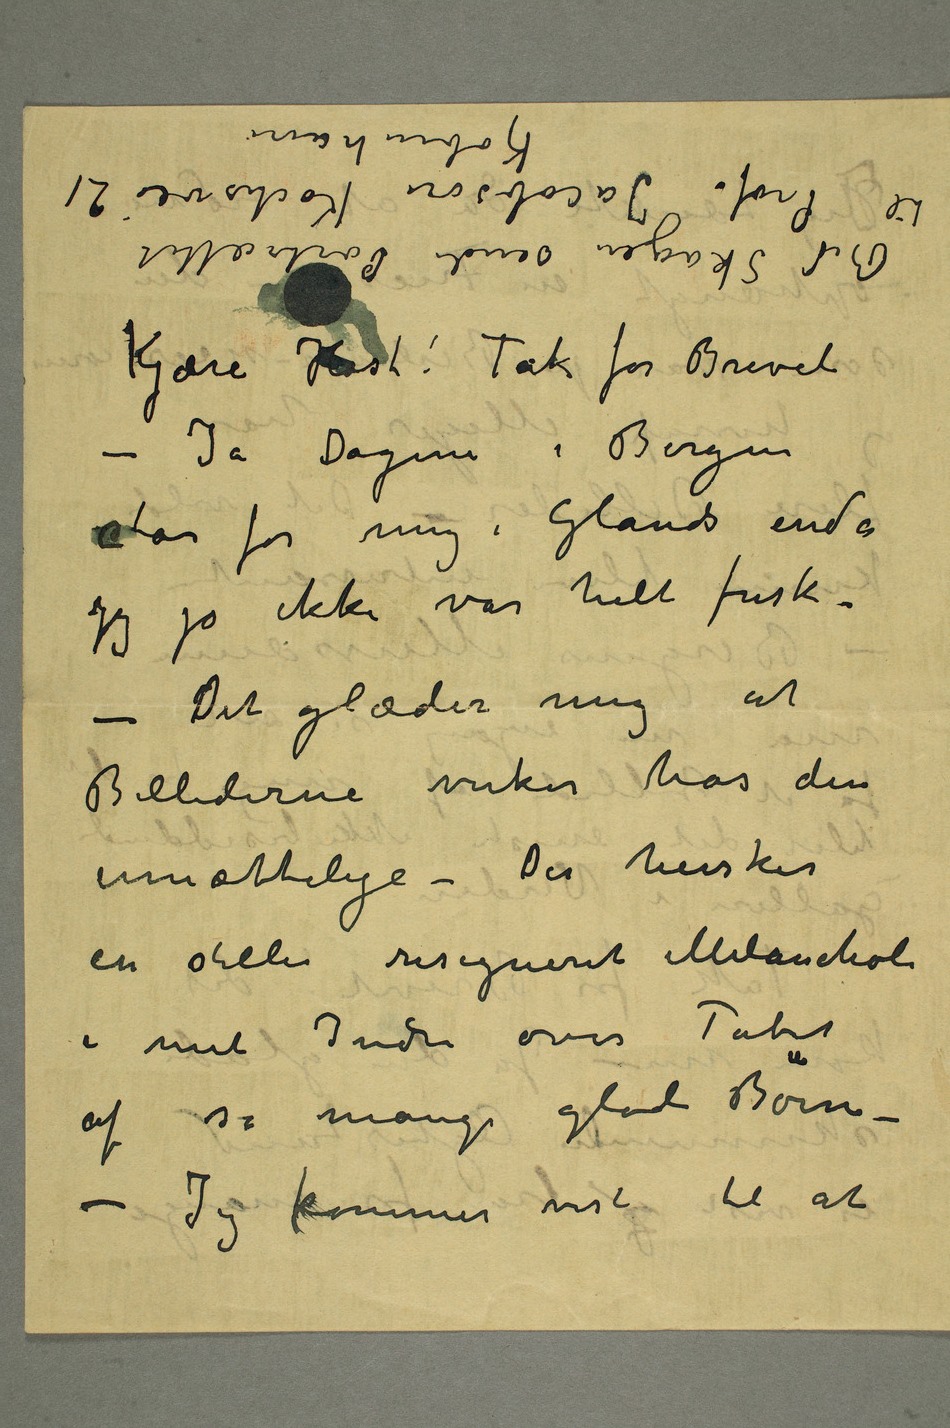 Bed Skagen sende Portrættet
til Prof. Jacobson Kochsvei 21
Kjøbenhavn
Kjære Høst! Tak for Brevet
– Ja Dagene i Bergen
står for mig i Glands enda
jeg jo ikke var helt frisk –
– Det glæder mig at
Billederne virker hos den
umættelige – Der hersker
en stille resigneret Melancholi
i mit Indre over Tabet
af så mange glade Börn –
– Jeg kommer vist til at